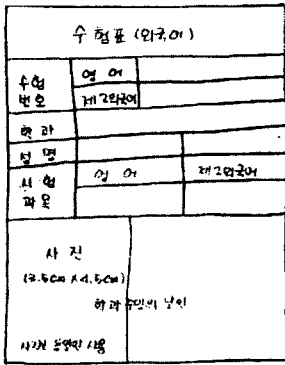 수험표 (외국어)
수험 번호
영어
제2외국어
학과
성명
시험 과목
영어
제2외국어
사진
(3.5cm x 4.5cm)
학과 주임의 날인
사진은 동일한 사용